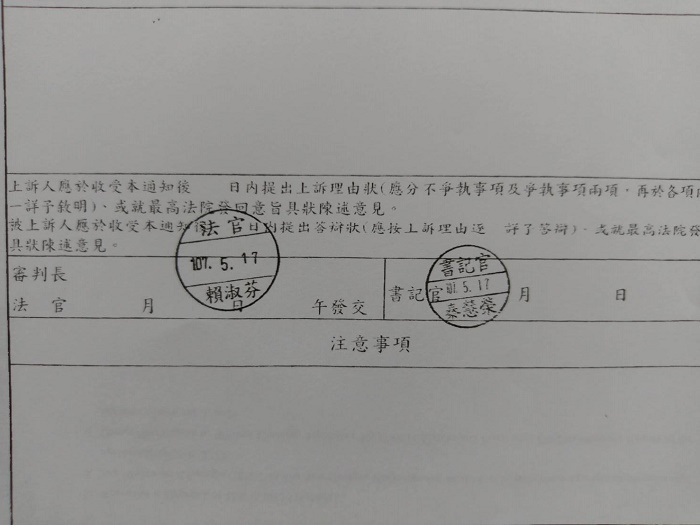 上訴人應於收受本通知後 日內提出上訴理由狀(應分不爭執事項及爭執事項兩項,再於各項內
一詳予敘明)、或就最高法院發回意旨具狀陳述意見。
被上訴人應於收受本通知 日內提出答辯狀(應按上訴理由逐 詳予答辯)、或就最高法院發
具狀陳述意見。
法官
107. 5. 17
賴淑芬
審判長
法 官 月 日 午發交
書記官
5. 17
秦慧榮
書記官 月 日
注意事項